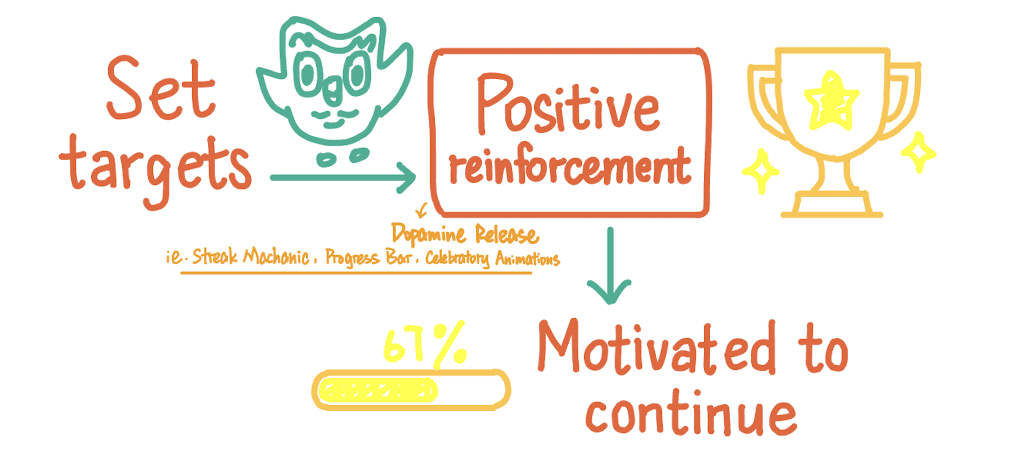 Set
targets
Positive
reinforcement
Dopamine Release
ie. Streak Machanic, Progress Bar, Celebratory Animations
67%
Motivated to
continue